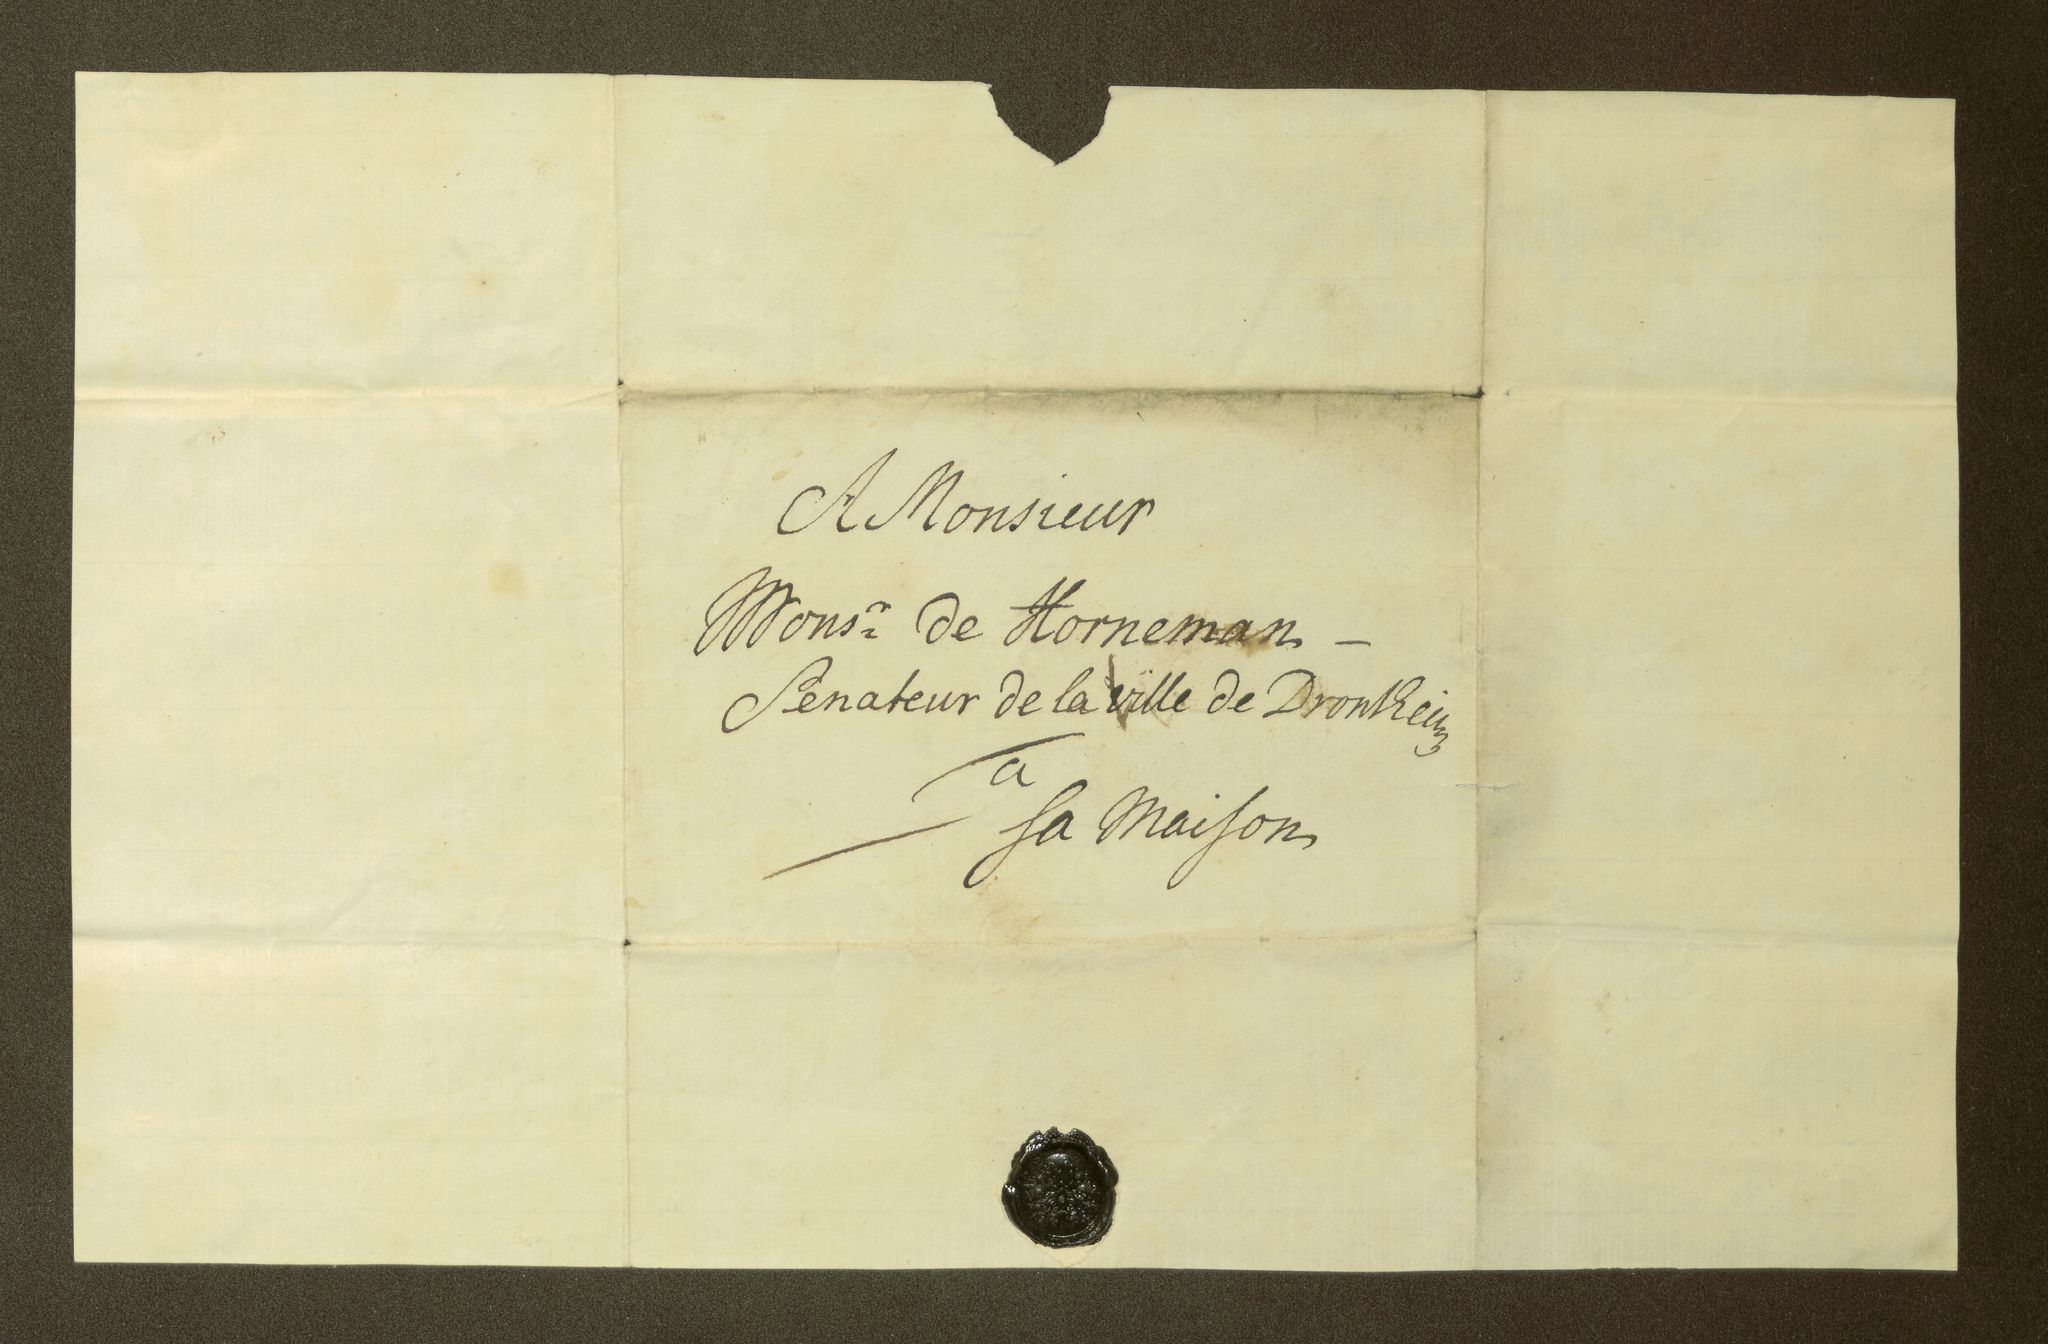 A Monsieur
Monsr de Horneman –
Senateur de la ville de Drontheim
a
sa Maison